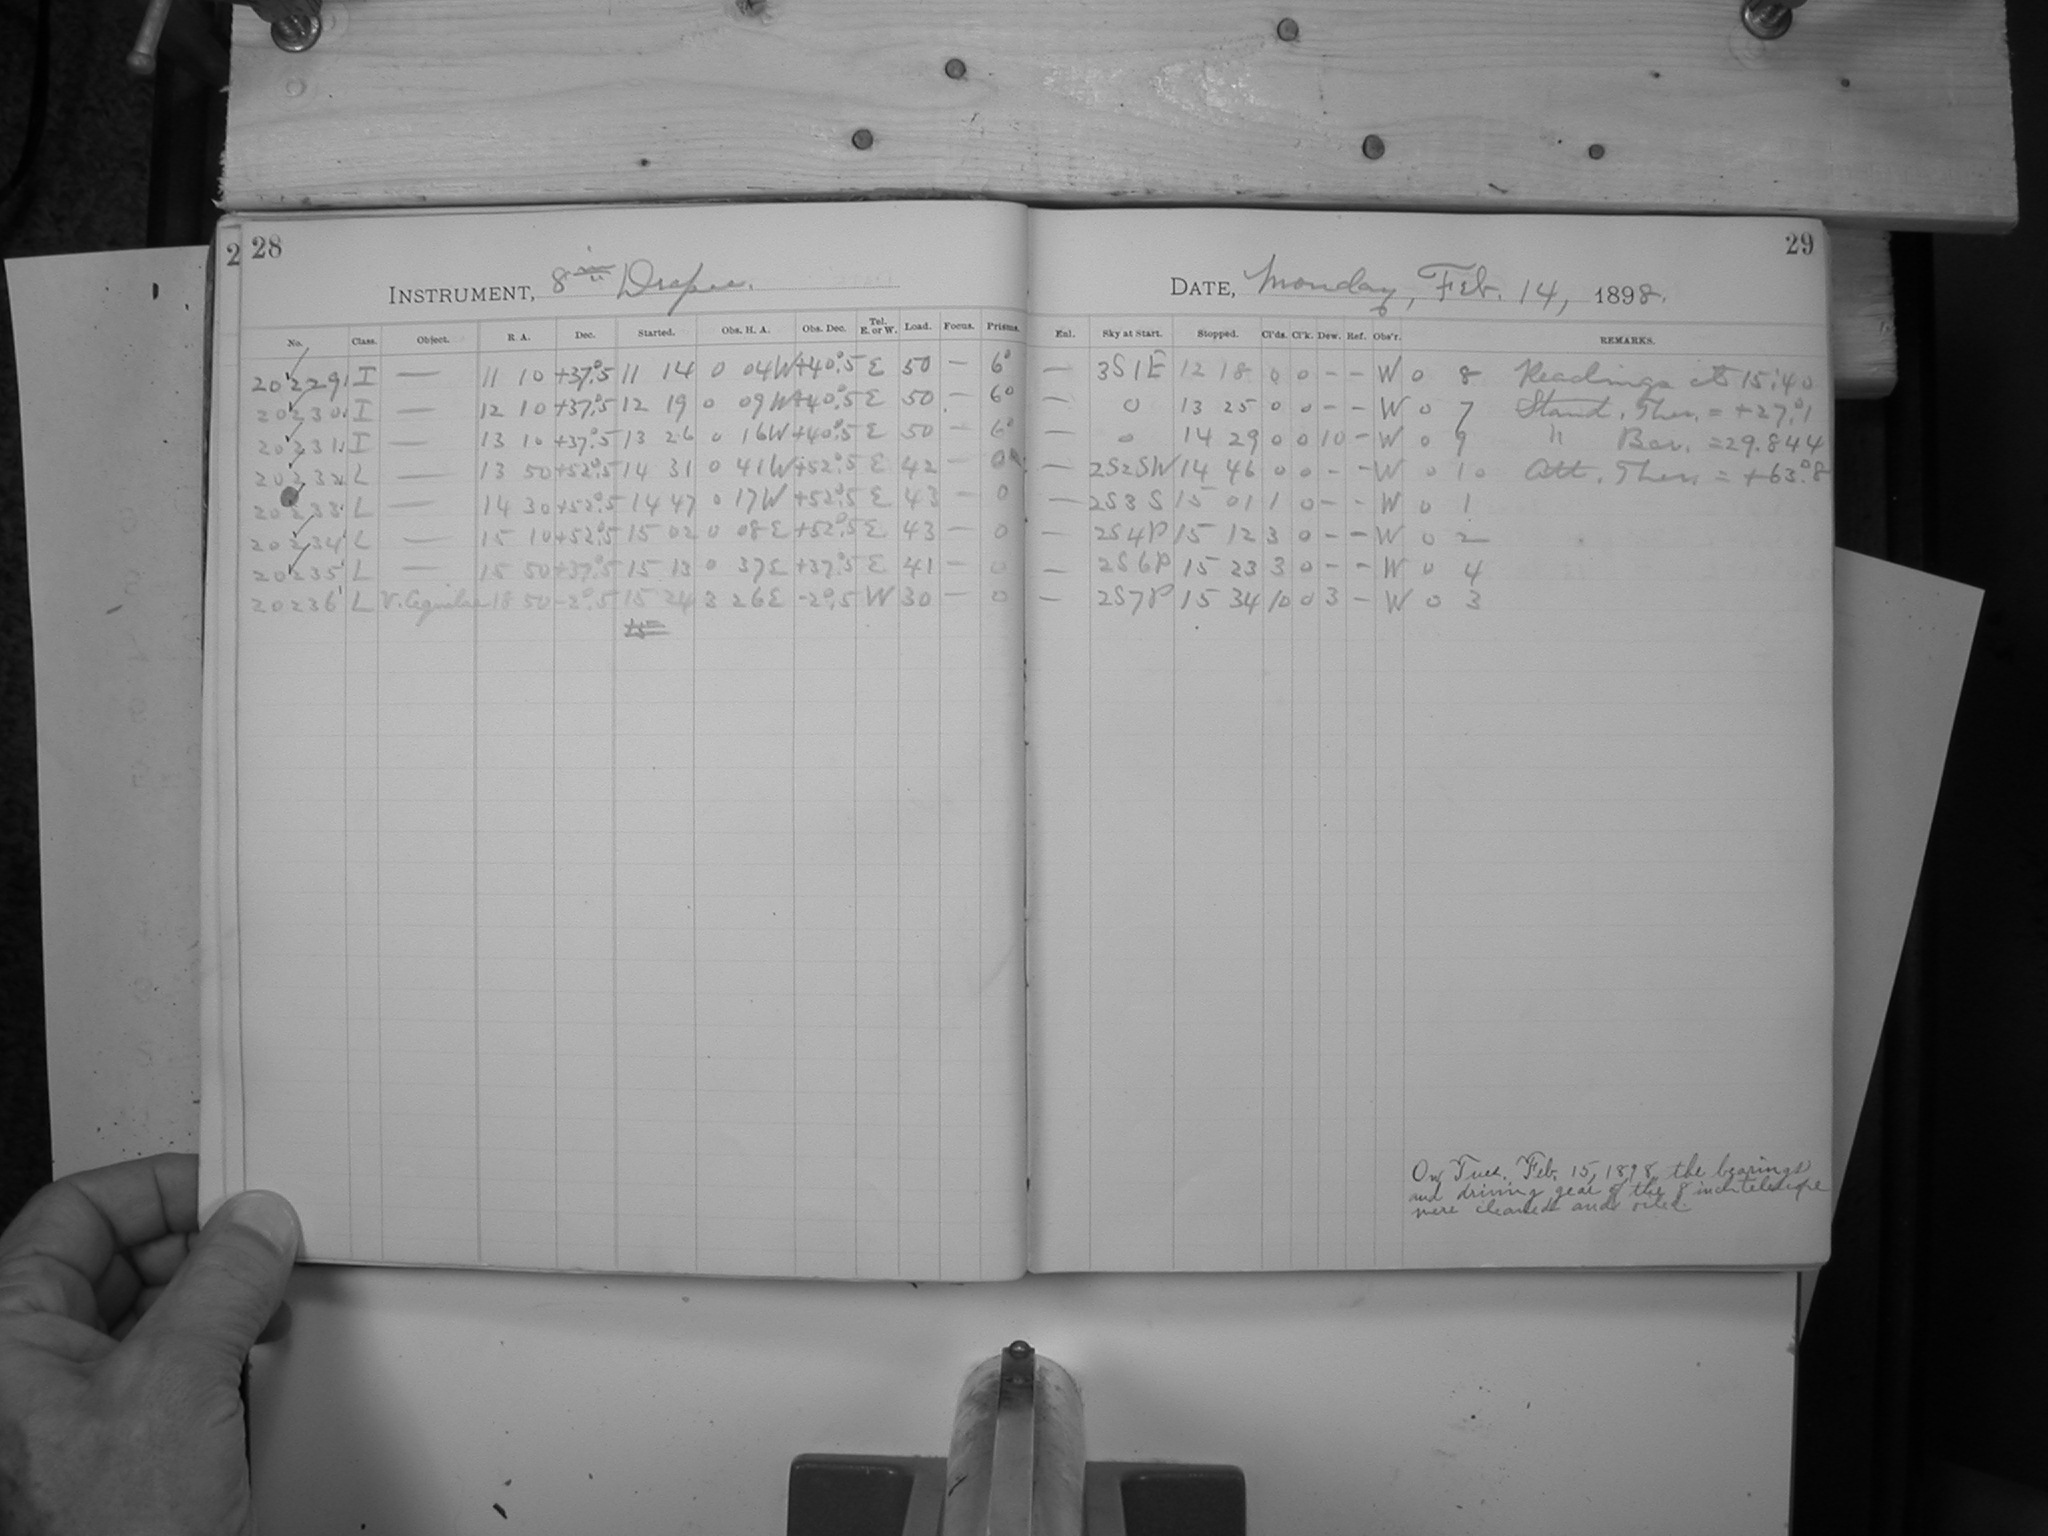 2 28
29
INSTRUMENT, 8 in Draper.
DATE, Monday, Feb. 14, 1898.
No. Class. Object. R.A. Dec. Started. Obs. H. A. Obs. Dec. Tel. E. or W. Load. Focus. Prisms. Enl. Sky at Start. Stopped. Cl'ds. Cl'k. Dew. Ref. Obs'r. REMARKS.
20229 I — 11 10 +37°.5 11 14 0 04W +40°.5 E 50 — 6° — 3S1E 12 18 0 0 - - W 0 8 Readings at 15:40
20230 I — 12 10 +37°.5 12 19 0 09W +40°.5 E 50 — 6° — 0 13 25 0 0 - - W 0 7 Stand. Ther. = +27°.1
20231 I — 13 10 +37°.5 13 26 0 16W +40°.5 E 50 — 6° — 0 14 29 0 0 10 - W 0 9 " Bar. = 29.844
20232 L — 13 50 +52°.5 14 31 0 41W +52°.5 E 42 — 0 — 2S2SW 14 46 0 0 - - W 0 10 Att. Ther. = +63°.8
20233 L — 14 30 +52°.5 14 47 0 17W +52°.5 E 43 — 0 — 2S3S 15 01 1 0 - - W 0 1
20234 L — 15 10 +52°.5 15 02 0 08E +52°.5 E 43 — 0 — 2S4P 15 12 3 0 - - W 0 2
20235 L — 15 50 +37°.5 15 13 0 37E +37°.5 E 41 — 0 — 2S6P 15 23 3 0 - - W 0 4
20236 L V. Aquilae 18 50 -2°.5 15 24 3 26E -2°.5 W 30 — 0 — 2S7P 15 34 10 0 3 - W 0 3
On Tues. Feb. 15, 1898, the bearings
and driving gear of the 8 inch telescope
were cleaned and oiled.